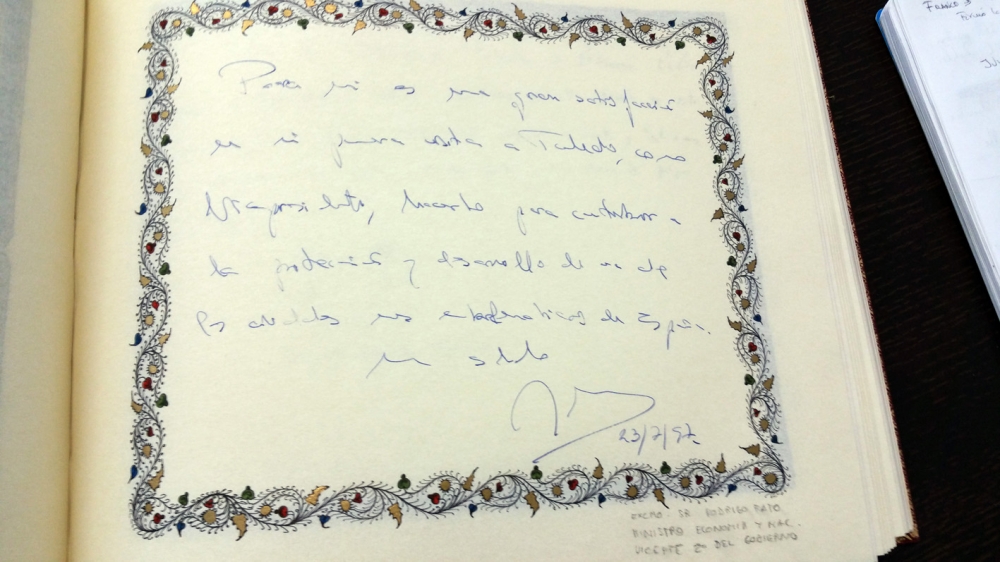 Para mí es una gran satisfacción
en mi primera visita a Toledo, como
Vicepresidente, hacerlo para contribuir a
la protección y desarrollo de una de
las ciudades más emblemáticas de España.
Un saludo
23/7/97
EXCMO. SR. RODRIGO RATO.
MINISTRO ECONOMIA Y HAC.
VICEPTE 2º DEL GOBIERNO